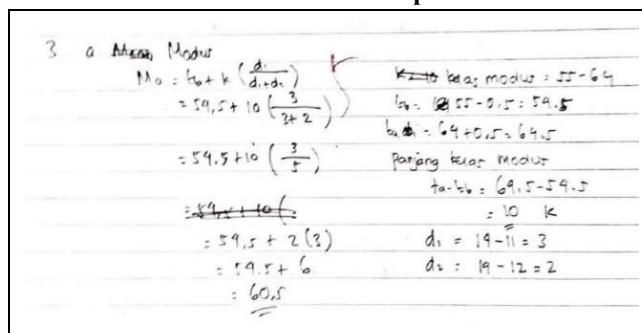 3 a. Modus
Mo = tb + k (d1/(d1+d2))
= 54,5 + 10 (3/(3+2))
= 54.5 + 10 (3/5)
= 54,5 + 10 (
= 54,5 + 2 (3)
= 54.5 + 6
= 60,5
kelas modus = 55 - 64
tb = 55 - 0,5 = 54.5
= 64 + 0,5 = 64,5
panjang kelas modus
ta - tb = 64,5 - 54.5
= 10 k
d1 = 14 - 11 = 3
d2 = 14 - 12 = 2